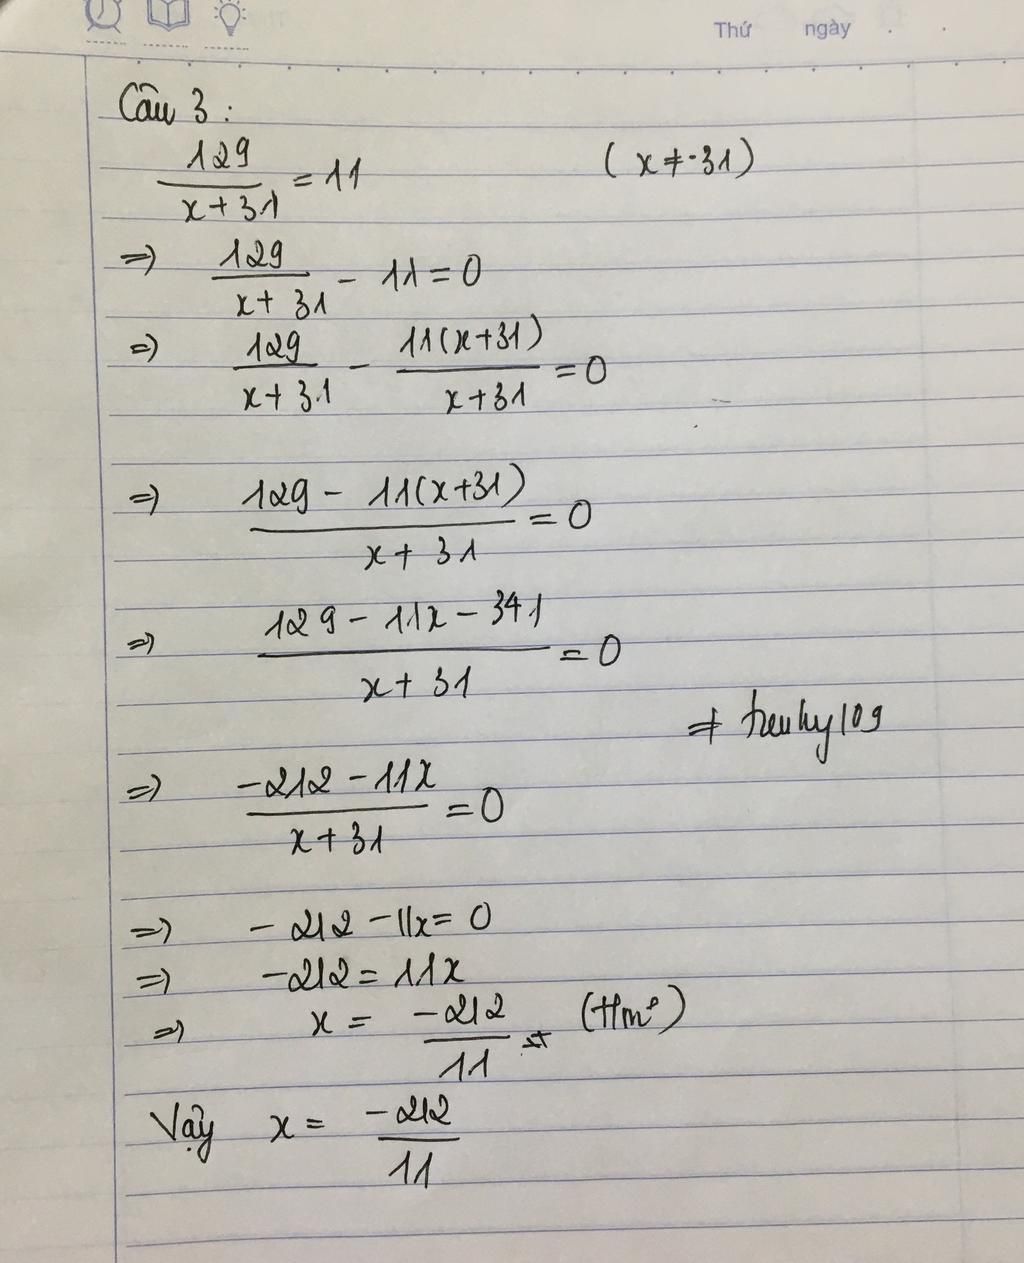 Thứ ngày
Câu 3:
129/(x+31) = 11 (x≠-31)
=> 129/(x+31) - 11 = 0
=> 129/(x+31) - 11(x+31)/(x+31) = 0
=> (129 - 11(x+31))/(x+31) = 0
=> (129 - 11x - 341)/(x+31) = 0
=> (-212 - 11x)/(x+31) = 0
=> -212 - 11x = 0
=> -212 = 11x
=> x = -212/11
Vậy x = -212/11